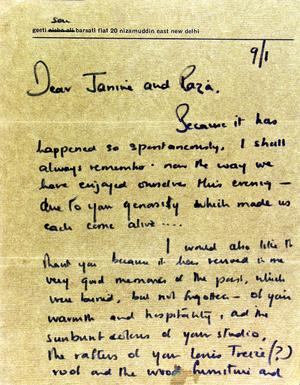 sen
geeti nisha ali barsati flat 20 nizamuddin east new delhi
9/1
Dear Janine and Raza,
Because it has
happened so spontaneously, I shall
always remember now the way we
have enjoyed ourselves this evening —
due to your generosity which made us
each come alive ....
I would also like to
thank you because it has revived in me
very good memories of the past, which
were buried, but not forgotten — of your
warmth and hospitality, and the
sunburnt colours of your studio,
the rafters of your Louis Treize (?)
roof and the wood furniture and